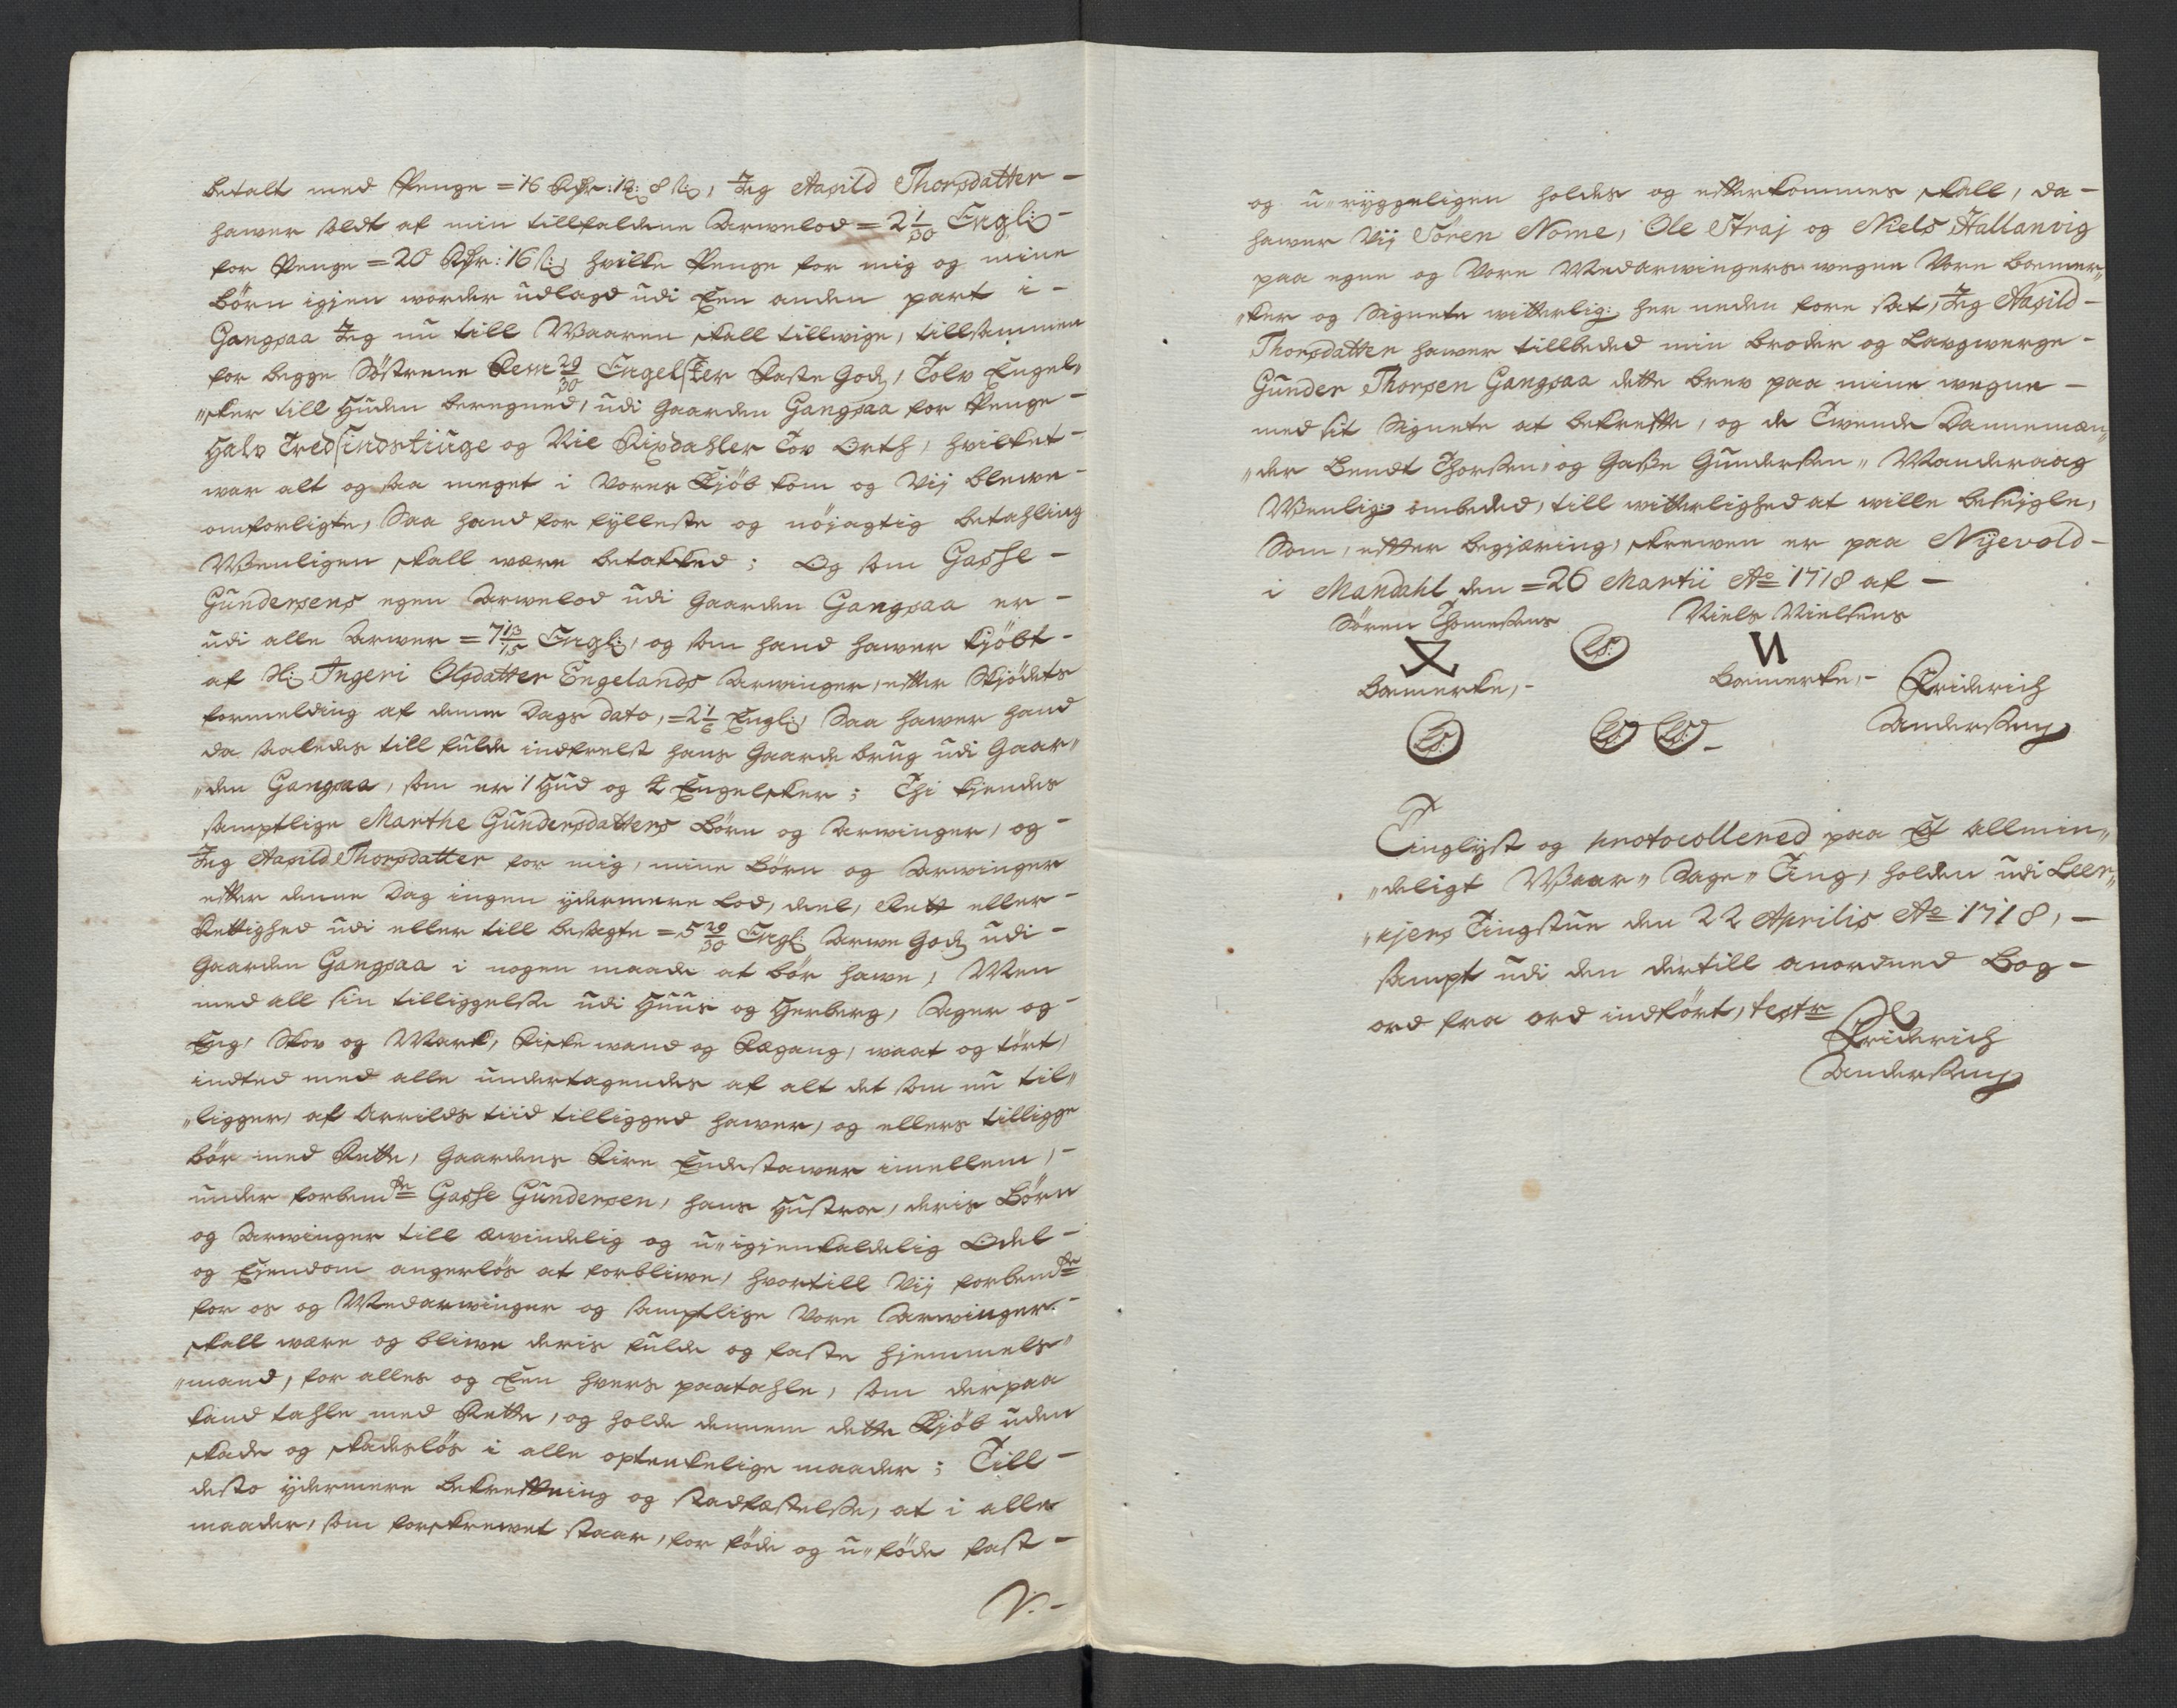 betalt med Penge =16 Rdr: 1q: 8 s:, Jeg Aasild Thorsdatter -
hawer soldt af min tillfaldene Arwelod =2 1/30 Engl: -
for Penge =20 Rdr: 16 s:, hvilke Penge for mig og mine
Börn igjen worder udlagd udi Een anden part i -
Gangsaa Jeg nu till Waaren skall tillwige, tillsammen
for begge Söstrene Fem 29/30 Engelsker Faste Gods, Tolv Engel„
„sker till Huden beregned, udi Gaarden Gangsaa for Penge -
Halv Tredsindstiuge og Nie Rixdahler Tov Orth, hvilket -
war alt og saa meget i Vores Kjöb kom og Vij blewe -
omforligte, Saa hand for fylleste og nöjagtig betahling
Wenligen skall være betakked; Og som Gasse -
Gundersens egen Arwelod udi Gaarden Gangsaa er -
udi alle Arwer =7 13/15 Engl:, og som hand hawer Kjöbt -
af Sl: Ingeri Olsdatter Engelands Arwinger, efter Skjödets
formelding af denne Dags dato, =2 1/6 Engl:, Saa hawer hand
da saaledes till fulde indfrelst hans Gaarde brug udi Gaar„
„den Gangsaa, som er 1 Hud og 4 Engelsker; Thi kjendes
samptlige Marthe Gundersdatters Börn og Arwinger, og -
Jeg Aasild Thorsdatter for mig, mine Börn og Arwinger
efter denne Dag ingen ydermere Lod, deel, Rett eller -
Rettighed udi eller till besagte =5 29/30 Engl: Arwe Gods udi -
Gaarden Gangsaa i nogen maade at bör hawe, Men
med all sin tilliggelse udi Huus og Herberg, Ager og -
Eng, Skov og Mark, Fiske wand og Fægang, waat og tört,
indted med alle undertagendes af alt det som nu til„
„ligger, af Arrilds tiid tilligged hawer, og ellers tilligge
bör med Rette, Gaardens Fire Endestawer imellem, -
under forbemte Gasse Gundersen, hans Hustroe, deris Börn
og Arwinger till ævindelig og u„igjenkaldelig Odel -
og Ejendom angerlös at forbliwe, hvortill Vij forbemte
for os og Medarwinger og samptlige Vore Arwinger -
skall være og bliwe deris fulde og faste Hjemmels„
„mand, for alles og Een hvers paatahle, som derpaa
kand tahle med Rette, og holde dennem dette Kjöb uden
skade og skadeslös i alle optenkelige maader; Till -
desto ydermere bekreftning og stadfæstelse, at i alle
maader, som forskrewet staar, for föde og u„föde fast -
V. -
og u„ryggeligen holdes og efterkommes skall, da -
hawer Vij Sören Nome, Ole Straj og Niels Hallanvig
paa egne og Vore Medarwingers wegne Vore boemer„
„ker og Signete witterlig: her neden fore sat, Jeg Aasild -
Thorsdatter hawer tillbeded min broder og Laugwerge -
Gunder Thorsen Gangsaa dette brev paa mine wegne -
med sit Signete at bekrefte, og de Twende Dannemæn„
„der Bendt Thorsen„ og Gasse Gundersen„ Wanderaag
Wenlig ombeded, till witterlighed at wille besejgle,
Som, efter begjæring, skrewen er paa Nyevold -
i Mandahl den =26 Martii Ao 1718 af -
Sören Thomesens Niels Nielsens
LS:
Boemerke, - Boemerke, - Friderich
Andersen
LS: LS: LS: -
Tinglyst og protocollered paa Et Allmin„
„deligt Waar„ Sage„ Ting, holden udi Leer„
„kjers Tingstue den 22 Aprilis Ao 1718, -
sampt udi den dertill anordned Bog -
ord fra ord indfört, testr
Friderich
Andersen